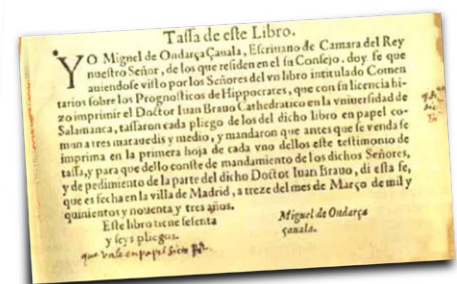 Tassa de este Libro.
YO Miguel de Ondarça Çauala, Escriuano de Camara del Rey
nuestro Señor, de los que residen en el su Consejo. doy fe que
auiendose visto por los Señores del vn libro intitulado Comen
tarios sobre los Prognosticos de Hippocrates, que con su licencia hi-
zo imprimir el Doctor Iuan Brauo Cathedratico en la vniuersidad de
Salamanca, tassaron cada pliego de los del dicho libro en papel co-
mun a tres marauedis y medio, y mandaron que antes que se venda se
imprima en la primera hoja de cada vno dellos este testimonio de
tassa, y para que dello conste de mandamiento de los dichos Señores,
y de pedimiento de la parte del dicho Doctor Iuan Brauo, di esta fe,
que es fecha en la villa de Madrid, a treze del mes de Março de mil y
quinientos y nouenta y tres años.
Este libro tiene sesenta
y seys pliegos.
Miguel de Ondarça
çauala.
que vale en papel siete